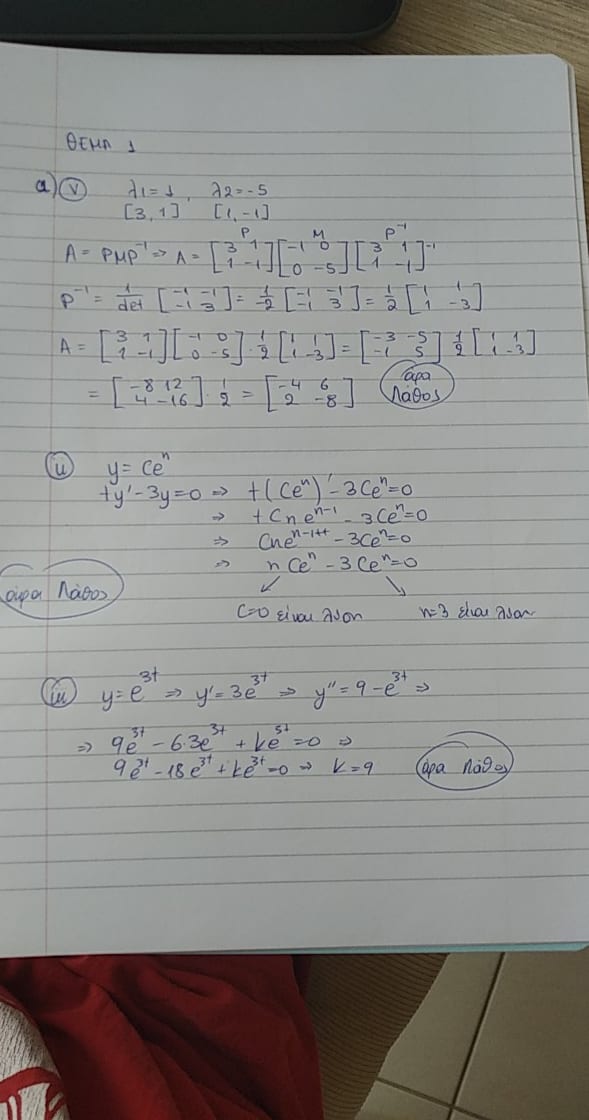 ΘΕΜΑ 1
α) (v) λ1=1, λ2=-5
[3,1] [1,-1]
P M P⁻¹
A = PMP⁻¹ => A = [3 1; 1 -1] [-1 0; 0 -5] [3 1; 1 -1]⁻¹
P⁻¹ = 1/det [-1 -1; -1 3] = 1/-2 [-1 -1; -1 3] = 1/2 [1 1; 1 -3]
A = [3 1; 1 -1] [-1 0; 0 -5] · 1/2 [1 1; 1 -3] = [-3 -5; -1 5] 1/2 [1 1; 1 -3]
= [-8 12; 4 -16] · 1/2 = [-4 6; 2 -8] άρα Λάθος
(ii) y = Ceⁿ
ty' - 3y = 0 => t(Ceⁿ)' - 3Ceⁿ = 0
=> tCneⁿ⁻¹ - 3Ceⁿ = 0
=> Cneⁿ⁻¹⁺⁺ - 3Ceⁿ = 0
=> nCeⁿ - 3Ceⁿ = 0
άρα Λάθος
C=0 είναι λύση n=3 είναι λύση
(iii) y = e³ᵗ => y' = 3e³ᵗ => y'' = 9-e³ᵗ =>
=> 9e³ᵗ - 6·3e³ᵗ + ke⁵ᵗ = 0 =>
9e³ᵗ - 18e³ᵗ + ke³ᵗ = 0 => k = 9 άρα Λάθος